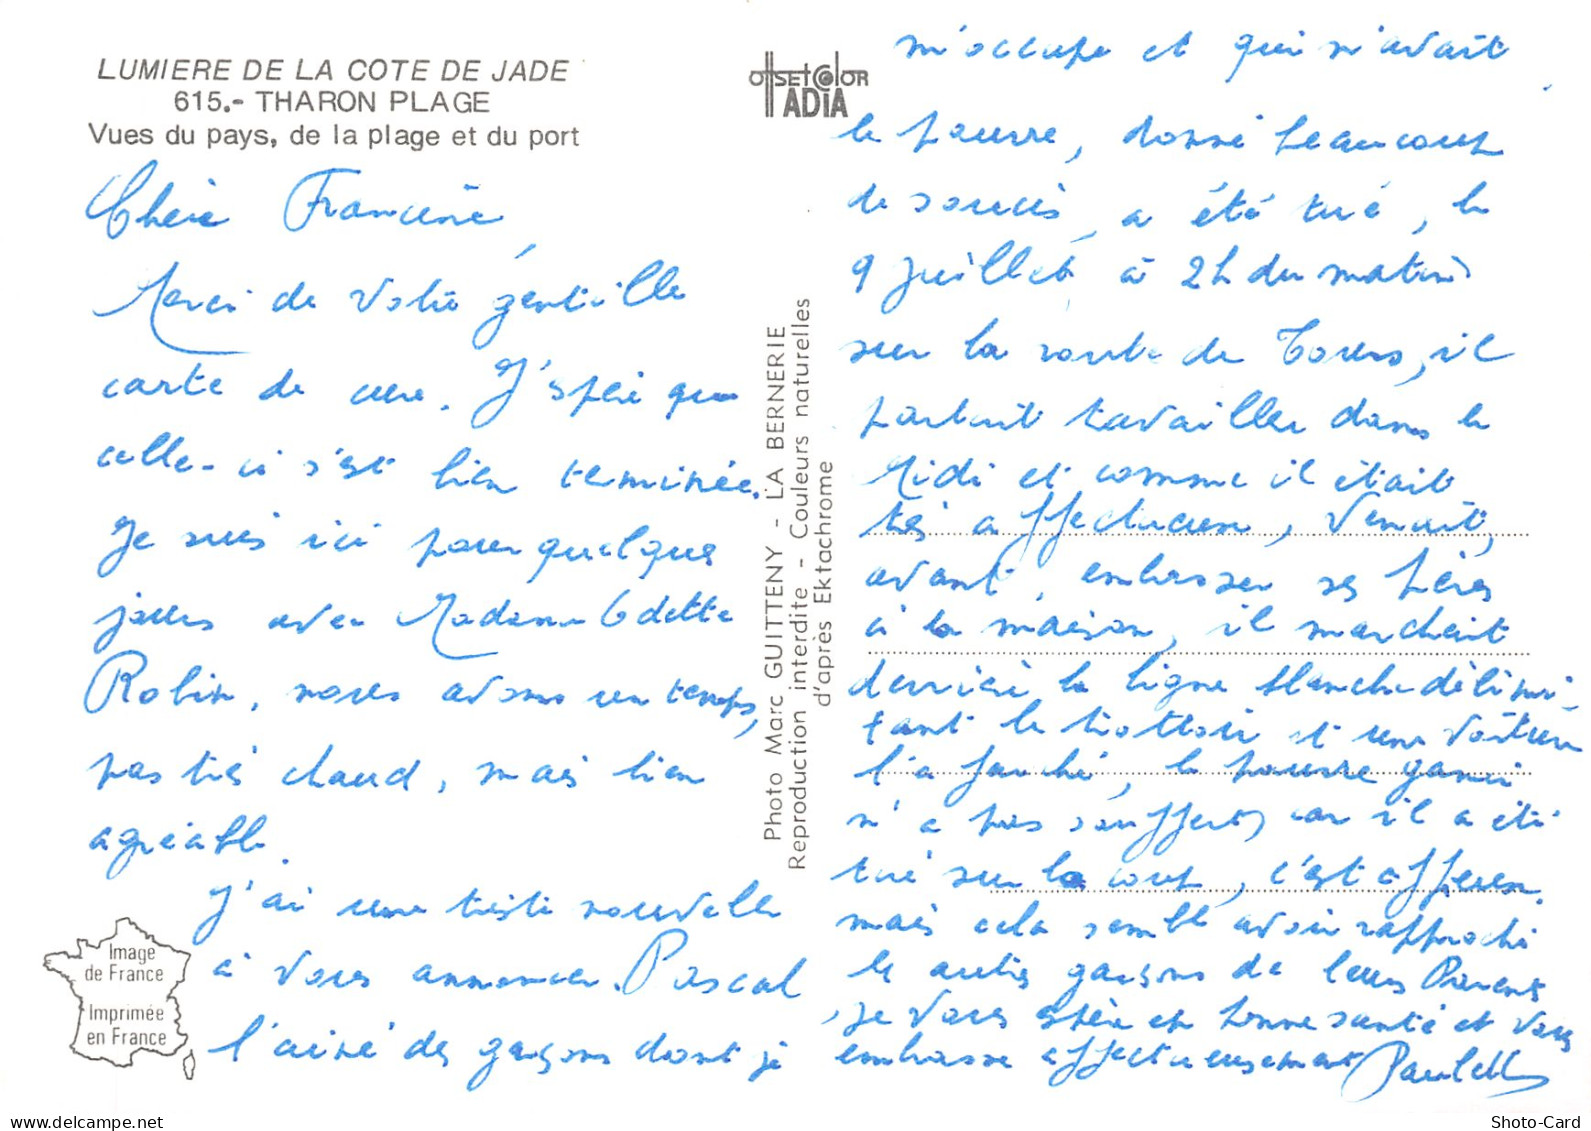 LUMIERE DE LA COTE DE JADE
615.- THARON PLAGE
Vues du pays, de la plage et du port
Chère Francine,
Merci de votre gentille
carte de cure. J'espère que
celle-ci s'est bien terminée.
Je suis ici pour quelques
jours avec Madame Odette
Robin, nous avons un temps,
pas très chaud, mais bien
agréable.
J'ai une triste nouvelle
à vous annoncer. Pascal
l'aîné des garçons dont je
Image
de France
Imprimée
en France
offset color
ADIA
Photo Marc GUITTENY - LA BERNERIE
Reproduction interdite - Couleurs naturelles
d'après Ektachrome
m'occupe et qui m'avait
le pauvre, donné beaucoup
de soucis, a été tué, le
9 juillet à 2h du matin
sur la route de Tours, il
partait travailler dans le
Midi et comme il était
très affectueux, venait,
avant, embrasser ses frères
à la maison, il marchait
derrière la ligne blanche délimi-
tant le trottoir et une voiture
l'a fauché, le pauvre gamin
n'a pas souffert, car il a été
tué sur le coup, c'est affreux.
mais cela semble avoir rapproché
les autres garçons de leurs Parents
je vous espère en bonne santé et vous
embrasse affectueusement Paulette
Shoto-Card